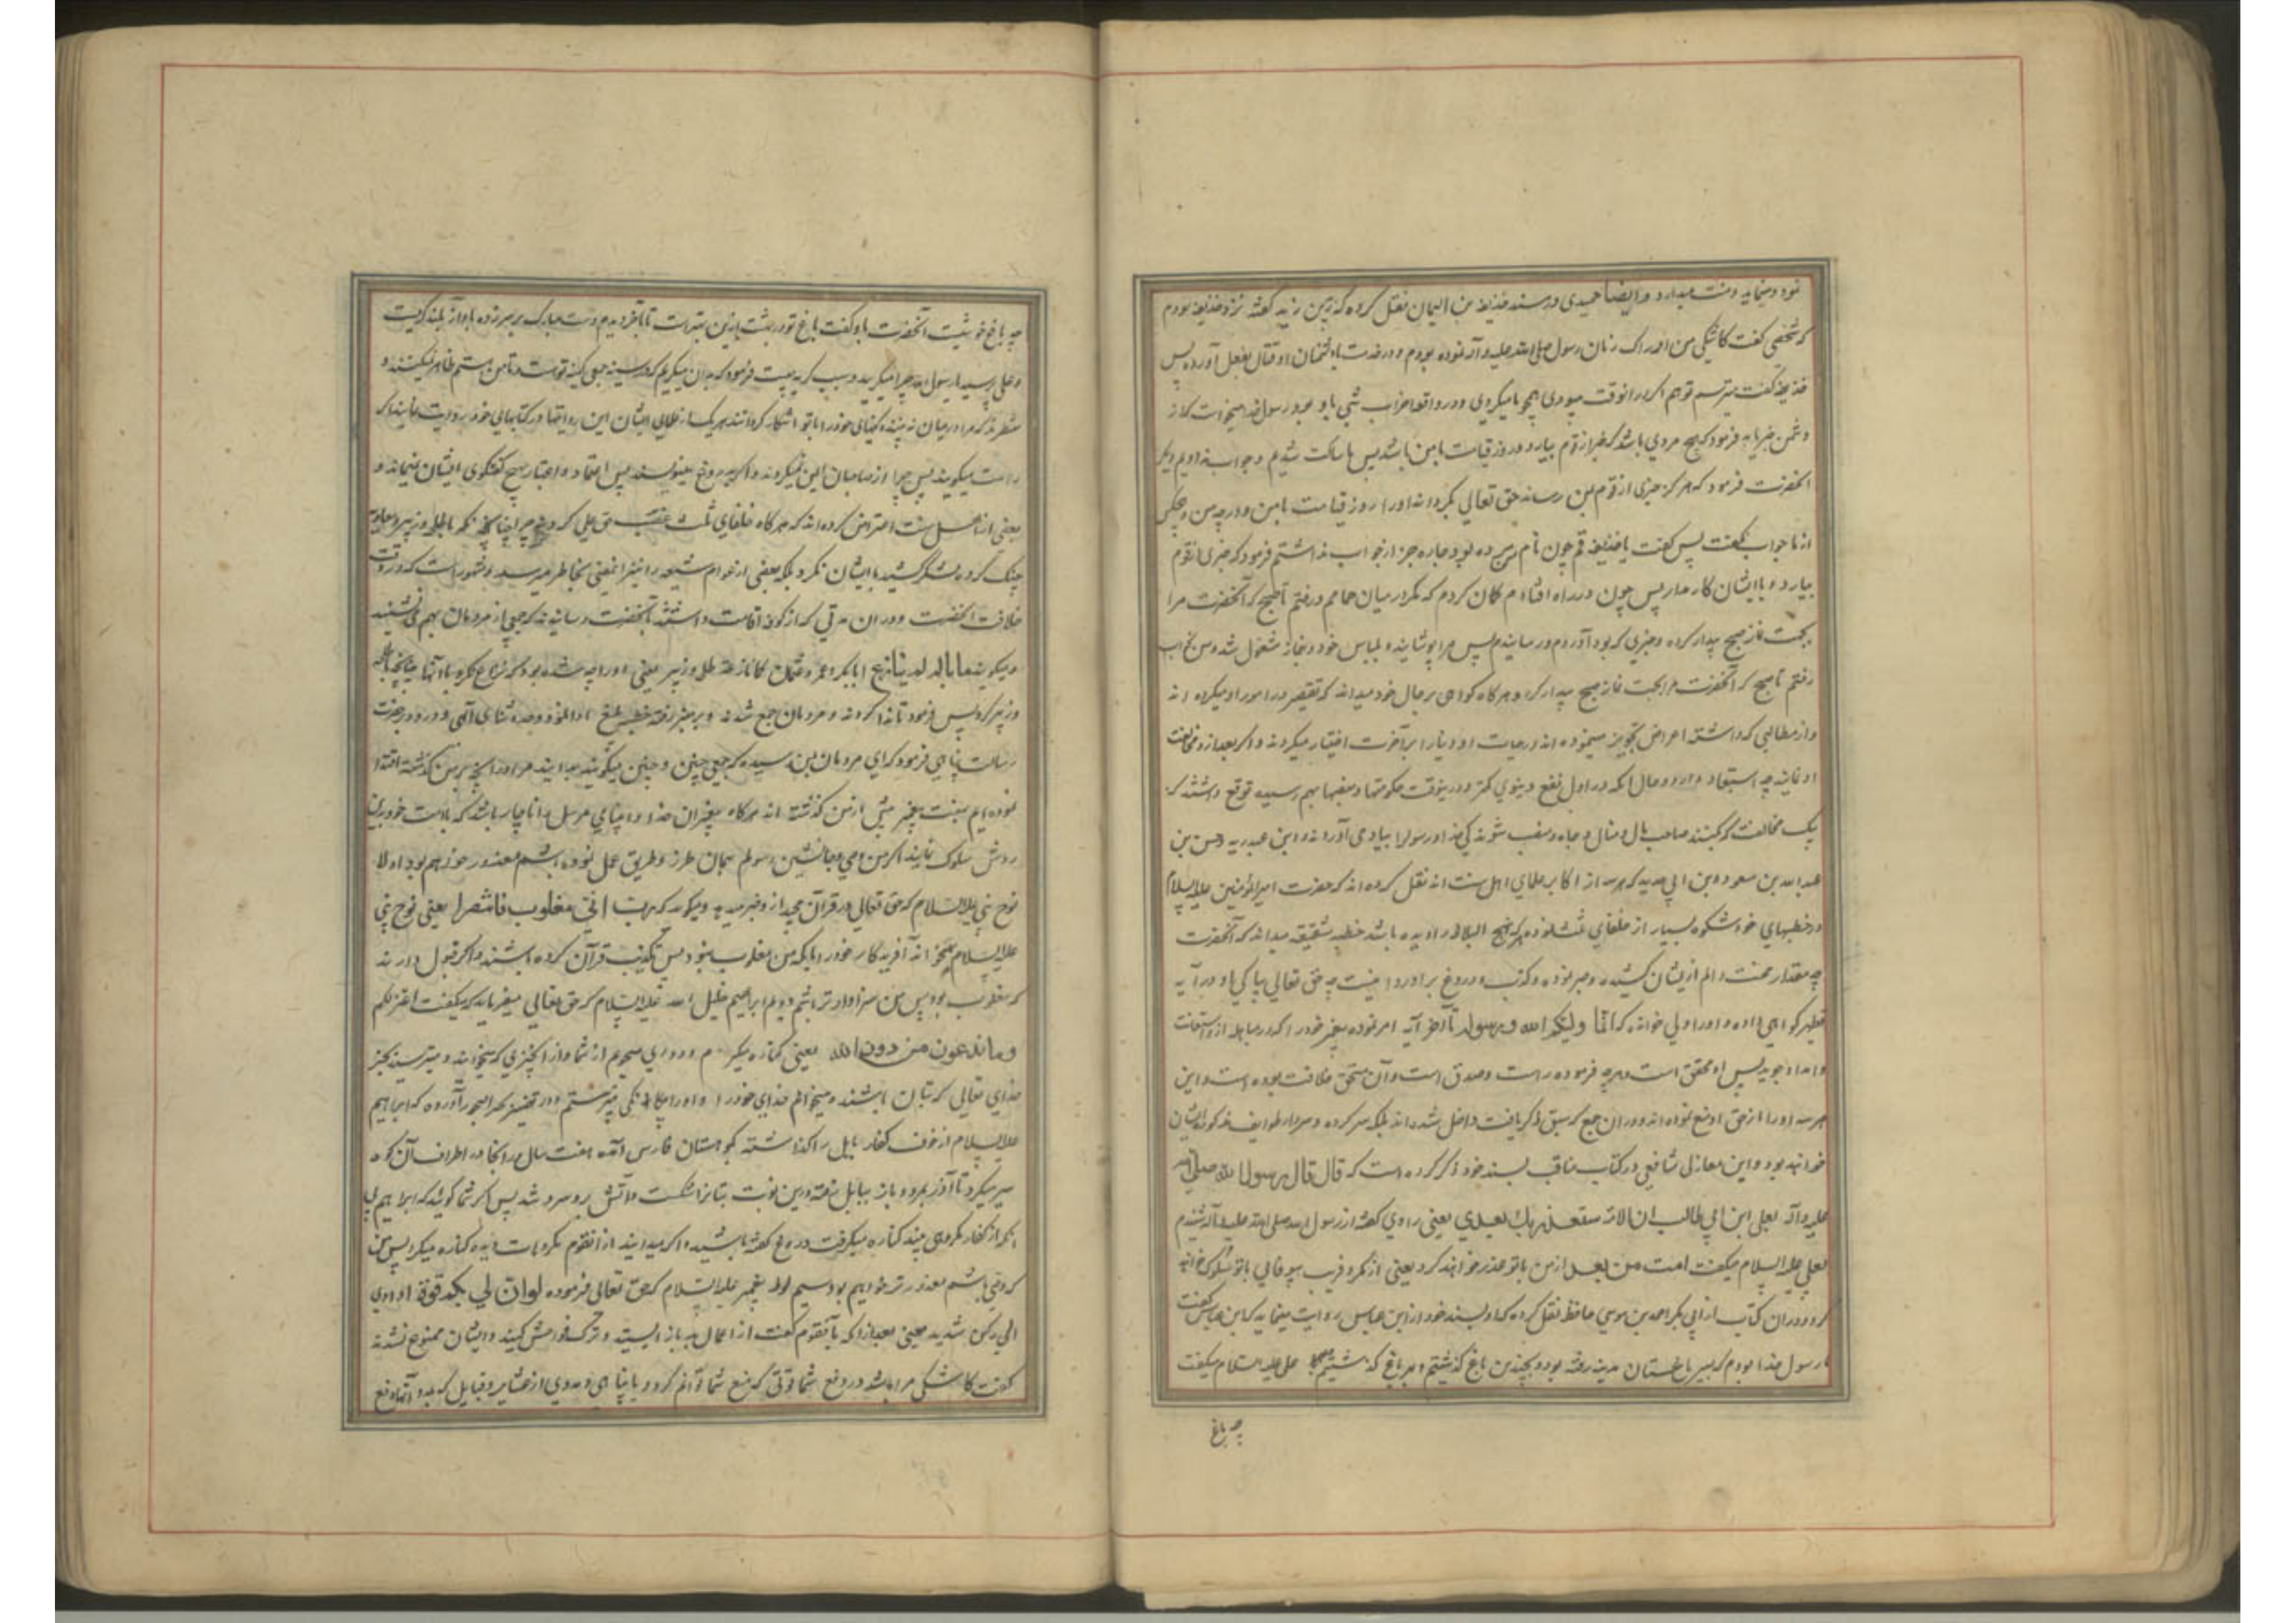 نمود و مینماید و منت میدارد و ایضا حمیدی در مسند حذیفه بن الیمان نقل کرده که زین زید گفته نزد حذیفه بودم
که شخصی گفت کاشکی من ادراک زمان رسول صلی الله علیه و آله نموده بودم و در خدمت با دشمنان او قتال بفعل آورده پس
حذیفه گفت میترسم تو هم اگر در انوقت میبودی همچو ما میکردی و در واقعه احزاب شبی باد بود و رسول خدا میخواست که از
دشمن خبر یابد فرمود که هیچ مردی باشد که خبر از قوم بیارد و در روز قیامت با من باشد پس ما ساکت شدیم و جواب ندادیم دیگر
آنحضرت فرمود که هر که خبری از قوم بمن رساند حق تعالی بگرداند او را روز قیامت با من و در درجه من و هیچکس
از ما جواب نگفت پس گفت یا حذیفه قم چون نام من برده بود چاره جز از جواب نداشتم فرمود که خبری از قوم
بیار و با ایشان کار مدار پس چون در راه افتادم گمان کردم که مگر در میان حمامم و رفتم تا صبح که آنحضرت مرا
بجهت نماز صبح بیدار کرده و خبری که بود آوردم و رسانیدم پس مرا پوشانید بلباس خود و بنماز مشغول شد و من بخواب
رفتم تا صبح که آنحضرت مرا بجهت نماز صبح بیدار کرد و هرگاه گواهی بر حال خود میداند که تقصیر در امور او میکرده اند
و از مطالبی که داشته اعراض تجویز مینموده اند در حیات او دنیا را بر آخرت اختیار میکردند و اگر بعد از او مخالفت
او نمایند چه استبعاد دارد و حال آنکه در اول نفع دنیوی کمتر و درینوقت حکومتها و منصبها بهم رسیده توقع داشتند که
یک مخالفت که بکنند صاحب مال و منال و جاه و منصب شوند کی خدا و رسول را بیاد می آوردند و ابن عبد ربه و حسن بن
عبدالله بن مسعود و ابن ابی حدید که هر سه از اکابر علمای اهل سنت اند نقل کرده اند که حضرت امیرالمؤمنین علیه السلام
در خطبهای خود شکوه بسیار از خلفای ثلثه نموده هر که نهج البلاغه را دیده باشد خطبه شقشقیه میداند که آنحضرت
چه مقدار محنت و الم از ایشان کشیده و صبر نموده و کذب و دروغ بر او روا نیست چه حق تعالی بپاکی او در آیه
تطهیر گواهی داده و او را ولی خوانده که انما ولیکم الله و رسوله تا آخر آیه امر نموده پیغمبر خود را که در مباهله از و استعانت
و امداد جوید پس او محق است و هر چه فرموده راست و صدق است و آن مستحق خلافت بوده است و این
هر سه او را از حق او منع نموده اند و در ان جمع که سبق ذکر یافت داخل شده اند بلکه سرکرده و سردار طوایف مذکوره ایشان
خواهند بود و ابن مغازلی شافعی در کتاب مناقب بسند خود ذکر کرده است که قال قال رسول الله صلی الله
علیه و آله لعلی ابن ابی طالب ان الامة ستغدر بك بعدي یعنی راوی گفته از رسول الله صلی الله علیه و آله شنیدم
بعلی علیه السلام میگفت امت من بعد از من با تو غدر خواهند کرد یعنی از مکر و فریب بیوفایی با تو سلوک خواهند
کرد و در ان کتاب از ابی بکر احمد بن موسی حافظ نقل کرده که او بسند خود از ابن عباس روایت مینماید که ابن عباس گفت
با رسول خدا بودم که بسیر باغستان مدینه رفته بود و بچندین باغ گذشتیم و بهر باغ که گذشتیم علی علیه السلام میگفت
چه باغ
چه باغ خوشیست آنحضرت باو گفت باغ تو در بهشت ازین بهتر است تا آخر دیدم دست مبارک بر سر زده باواز بلند گریست
و علی پرسید یا رسول الله چرا میگریید و سبب گریه چیست فرمود که بدان میگریم که در سینه جمعی کینه تو هست و تا من هستم ظاهر نمیکنند و
منتظرند که مرا در میان نه بینند و کینهای خود را با تو آشکار کردانند هر یک از علمای ایشان این روایتها در کتابهای خود روایت نمایند اگر
راست میگویند پس چرا از صاحبان این نمیگردند و اگر به دروغ مینویسند پس اعتماد و اعتبار هیچ گفتگوی ایشان نمیماند و
بعضی از اهل سنت اعتراض کرده اند که هرگاه خلفای ثلثه غصب حق علی کردند چرا چنانچه با طلحه و زبیر و معاویه
جنگ کرده لشکر کشید با ایشان نکرد بلکه بعضی از عوام شیعه را نیز این معنی بخاطر میرسد و مشهور است که در وقت
خلافت آنحضرت در ان مدتی که در کوفه اقامت داشتند بآنحضرت رسانیدند که جمعی از مردمان بهم می نشینند
و میگویند ما باله لم ینازع ابابکر و عمر و عثمان کما نازعه طلحه و زبیر یعنی او را چه شده بود که نزاع نکرد با آنها چنانچه با طلحه
و زبیر کرد پس فرمود تا ندا کردند و مردمان جمع شدند و بر منبر رفته خطبه بلیغ ادا نمود و حمد و ثنای الهی و درود بر حضرت
رسالت پناهی فرمود که ای مردمان بمن رسیده که جمعی چنین و چنین میگویند بدانید من در آنچه بر من گذشته اقتدا
نموده ایم بسنت پیغمبر پیش از من گذشته اند هرگاه پیغمبران خدا و انبیای مرسل را ناچار باشد که با امت خود برین
روش سلوک نمایند اگر من وصی و جانشین رسولم بهمان طرز و طریق عمل نموده باشم معذور خواهم بود اولا
نوح نبی علیه السلام که حق تعالی در قرآن مجید از و خبر میدهد و میگوید که رب انی مغلوب فانتصر یعنی نوح نبی
علیه السلام میخواند آفریدکار خود را بآنکه من مغلوب پس تکذیب قرآن کرده باشند و اگر قبول دارند
که مغلوب بود پس من سزاوارتر باشم دویم ابراهیم خلیل الله علیه السلام که حق تعالی میفرماید که میگفت اعتزلکم
وما تدعون من دون الله یعنی کناره میگیرم و دوری میجویم از شما و از آنچیزی که میخوانید و میپرستید بجز
خدای تعالی که بتان باشند و میخوانم خدای خود را و او را بیگانگی میپرستم و در تفسیر آورده که ابراهیم
علیه السلام از خوف کفار بابل را گذاشته بکوهستان فارس آمد هفت سال در آنجا در اطراف آن کوه
سیر میکرد تا آزر بمرد و باز ببابل رفته درین نوبت بتانرا شکست و آتش برو سرد شد پس اگر شما گوئید که ابراهیم بی
انکه از کفار مکروهی بیند کناره میگرفت دروغ گفته باشید و اگر میدانید از آنقوم مکروهات دیده کناره میگیرد پس من
که وصی باشم معذورتر خواهم بود سیم لوط پیغمبر علیه السلام که حق تعالی فرموده لو ان لی بکم قوة او آوی
الی رکن شدید یعنی بعد از آنکه بآنقوم گفت از اعمال بد باز ایستید و ترک فواحش کنید و ایشان ممنوع نشدند
گفت کاشکی مرا باشد در دفع شما قوتی که منع شما توانم کرد و یا پناهی و مددی از عشایر و قبایل که بمدد آنها دفع